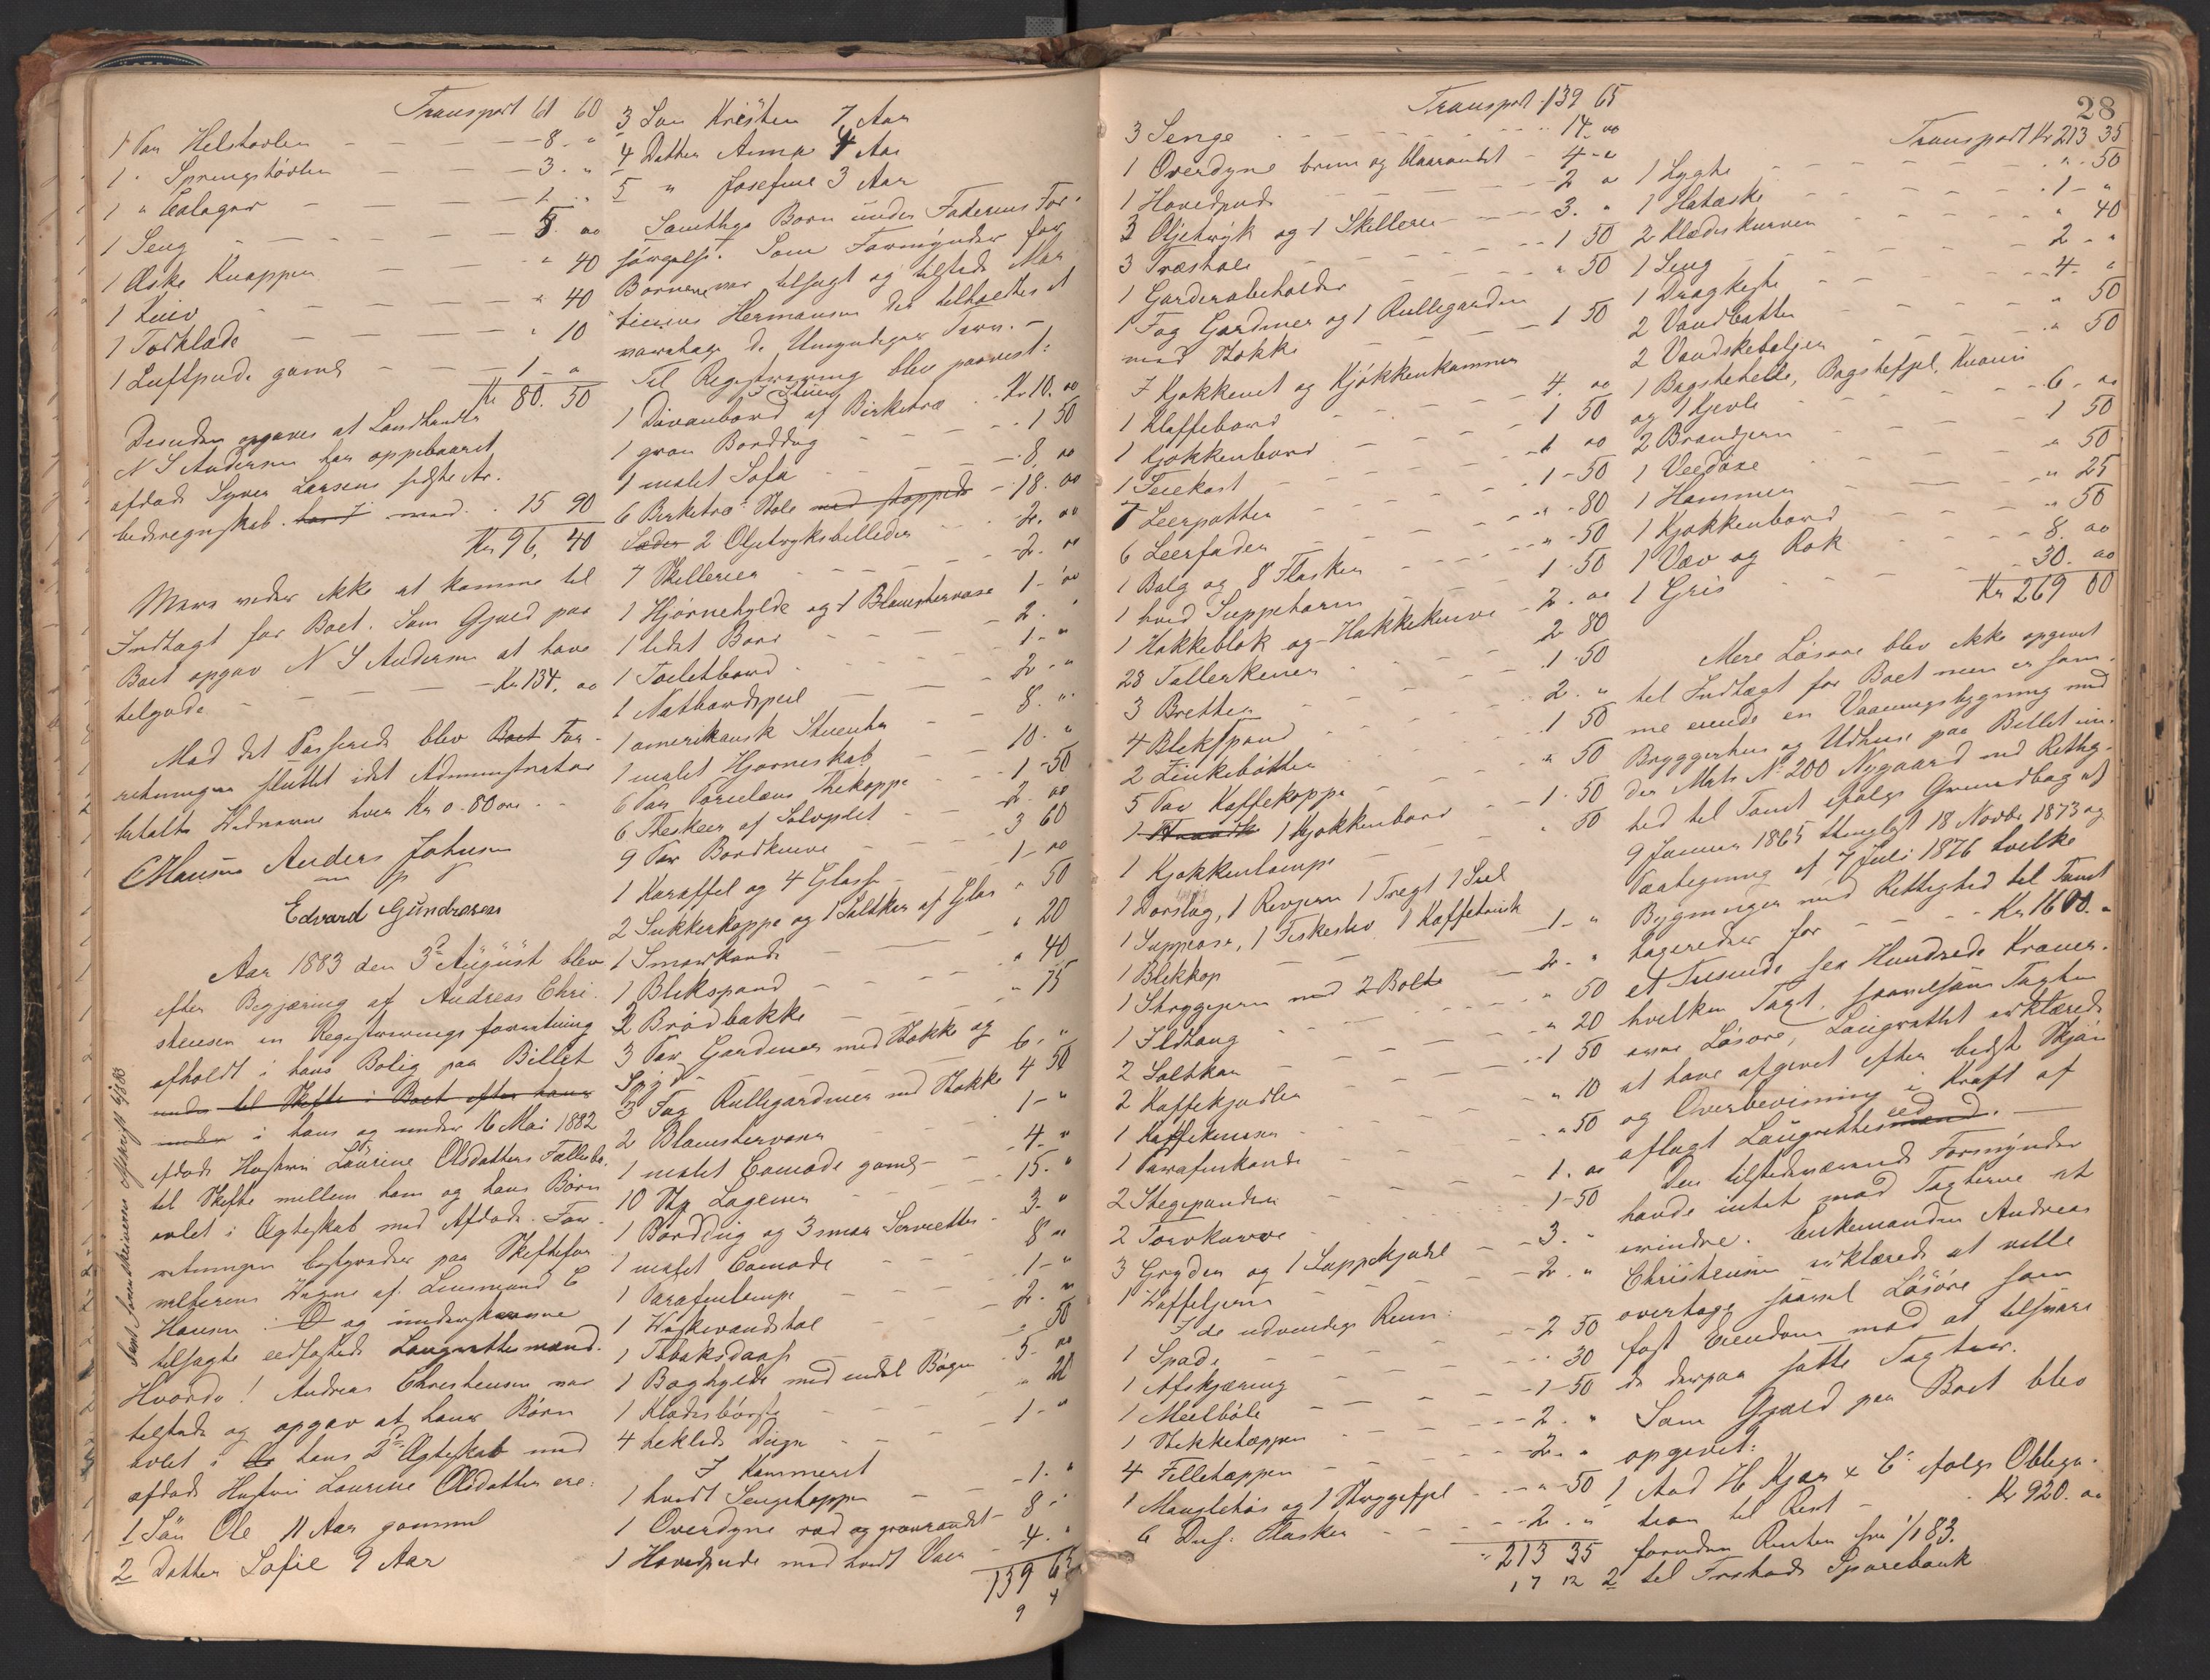 Transport 61 60
1 Par Helstøvler - 8. "
1 " Springstøvler - 3. "
1 " Calager - 1. "
1 Seng - 5. oo
1 Æske Knapper - " 40
1 Kniv - " 40
1 Tørklæde - " 10
1 Luftpude gamel - 1 - "
Kr 80. 50
Desuden opgaves at Landhandler
N S Andersen har oppebaaret
afdøde Syver Larsens sidste Ar-
beidsregnskab. har med. 15 90
Kr 96, 40
Mere vides ikke at komme til
Indtægt for Boet. Som Gjæld paa
Boet opgav N S Andersen at have
tilgode - Kr 134. oo
Med det Passerede blev Boet For-
retningen sluttet idet Administrator
betalte Vidnerne hver Kr 0.80 øre.
C Hansen Anders Johnsen
Edvard Gundrosen
Aar 1883 den 3de August blev
efter Begjæring af Andreas Chri-
stensen en Registrerings forretning
afholdt i hans Bolig paa Billet
under til Skifte i Boet efter hans
under i hans og under 16 Mai 1882
afdøde Hustru Laurine Olsdatters Fællesbo
til Skifte mellem ham og hans Børn
avlet i Ægteskab med Afdøde. For-
retningen bestyredes paa Skiftefor-
valterens Vegne af Lensmand C
Hansen og underskrevne
tilsagte eedfæstede Laugrettesmænd.
Hvorda! Andreas Christensen var
tilstede og opgav at hans Børn
avlet i hans 2de Ægteskab med
afdøde Hustru Laurine Olsdatter ere:
1 Søn Ole 11 Aar gammel
2 Datter Sofie 9 Aar
Sendt Sorenskriveren Afskrift
3 Søn Kristen 7 Aar
4 Datter Anna 4 Aar
5 " Josefine 3 Aar
Samtlige Børn under Faderens For-
sørgelse. Som Formynder for
Børnene var tilsagt og tilstede Mar-
tinius Hermansen der tilholdtes at
varetage de Umyndiges Tarv. -
Til Registrering blev paavist:
I Stuen
1 Divanbord af Birketræ - Kr 10. oo
1 graa Borddug - 1 50
1 malet Sofa - 8. oo
6 Birketræ Stole med stoppede - 18. oo
Sæder 2 Oljetryksbilleder - 2. oo
7 Skillerier - 2. oo
1 Hjørnehylde og 1 Blomstervase 1 - oo
1 lidet Bord - 2. "
1 Toiletbord - 1 - "
1 Natbordspeil - 2 - "
1 amerikansk Stueuhr - 8. "
1 malet Hjørneskab - 10. "
6 Par Porcelæns Thekopper - 1 - 50
6 Theskeer af Sølvplet - 2. oo
9 Par Bordknive - 3 60
1 Karaffel og 4 Glasse - 1 - oo
2 Sukkerkopper og 1 Saltkar af Glas " 50
1 Smørkande - " 20
1 Blikspand - " 40
2 Brødbakke - " 75
3 Par Gardiner med Stokke og
Spir - 6. "
3 Fag Rullegardiner med Stokke 4 50
2 Blomstervaser - 1 - "
1 malet Comode gamel - 4. "
10 Stk Lagener - 15. "
1 Borddug og 3 smaa Servietter - 3. "
1 malet Comode - 8 oo
1 Parafinlampe - 1 - "
1 Vaskevandstol - 2. "
1 Tobaksdaase - " 50
1 Boghylde med endel Bøger - 5. oo
1 Klædesbørste - " 20
4 heklede Duge - 1 - "
I Kammeret
1 hvidt Sengeteppe - 1. "
1 Overdyne rød og graarandet - 8 "
1 Hovedpude med hvidt Vaar - 4. "
139 65
28
Transport 139 65
3 Senge - 14. oo
1 Overdyne brun og blaarandet - 4 - "
1 Hovedpude - 2 "
3 Oljetryk og 1 Skilleri - 3. "
3 Træstole - 1 50
1 Garderobeholder - " 50
1 Fag Gardiner og 1 Rullegardin
med Stokke - 1 50
I Kjøkkenet og Kjøkkenkammer
1 Klaffebord - 4. oo
1 Kjøkkenbord - 1 50
1 Feiekost - 1 oo
7 Leerpotter - 1 - 50
6 Leerfader - " - 80
1 Balg og 8 Flasker - " - 50
1 hvid Suppeterin - 1. 50
1 Hakkeblok og Hakkekniv - 2. oo
28 Tallerkener - 2 80
3 Bretter - 1. 50
4 Blikspand - 2. "
2 Zinkebøtter - 1 50
5 Par Kaffekopper - " 50
1 1 Kjøkkenbord - 1. 50
1 Kjøkkenlampe - " 50
1 Dørslag, 1 Revjern 1 Tregt 1 Siel
1 Suppeøse, 1 Fiskeslev 1 Kaffetrint 1 - "
1 Blikkop - 2. "
1 Strygejern med 2 Bolte - " 50
1 Ildtang - " 20
2 Saltkar - 1 50
2 Kaffekjedler - " 10
1 Kaffekværn - " 50
1 Parafinkande
2 Stegepander - 1. oo
2 Torvkurve - 1 - 50
3 Gryder og 1 Suppekjedel - 3. "
1 Vaffeljern - 2. "
I de udvendige Rum:
1 Spade - 2 50
1 Afskjæring - 30
1 Meelbøle - 1 - 50
1 Stikketæppe - 2. "
4 Filletæpper - 2. "
1 Mangletræ og 1 Strygefjæl - " - 50
6 Dus. Flasker - 2. "
213 35
Transport Kr 213 35
1 Lygte - ". 50
1 Hatæske - 1 - "
2 Klædeskurver - " 40
1 Seng - 2 - "
1 Dragkiste - 4. "
2 Vandbøtter - " 50
2 Vandskebaljer - " 50
1 Bagstehelle, Bagstefjel, Kværn
og 1 Kjevle - 6. oo
2 Brandjern - 1 50
1 Vedøxe - " 50
1 Hammer - " 25
1 Kjøkkenbord - " 50
1 Væv og Rok - 8. oo
1 Gris - 30. oo
Kr 269 00
Mere Løsøre blev ikke opgivet
til Indtægt for Boet men er sam-
me eiende en Vaaningsbygning med
Bryggerhus og Udhuse paa Billet un-
der Matr. No 200 Nygaard med Rettig-
hed til Tomt ifølge Grundbrev af
9 Januar 1865 thinglyst 18 Novbr 1873 og
Paategning af 7 Juli 1876 hvilke
Bygninger med Rettighed til Tomt
taxeredes for - Kr 1600. "
et Tusinde sex Hundrede Kroner.
hvilken Taxt, saavelsom Taxten
over Løsøre, Laugrettet erklærede
at have afgivet efter bedste Skjøn
og Overbevisning i Kraft af
aflagt Laugrettesmand eed. -
Den tilstedeværende Formynder
havde intet mod Taxterne at
erindre. Enkemanden Andreas
Christensen erklærede at ville
overtage saavel Løsøre som
fast Eiendom mod at tilsvare
de derpaa satte Taxter.
Som Gjæld paa Boet blev
opgivet:
1 Aad H. Kjær & Co ifølge Obliga-
tion til Rest - Kr 920. oo
foruden Renter fra 1/1 83.
2 til Fredstads Sparebank